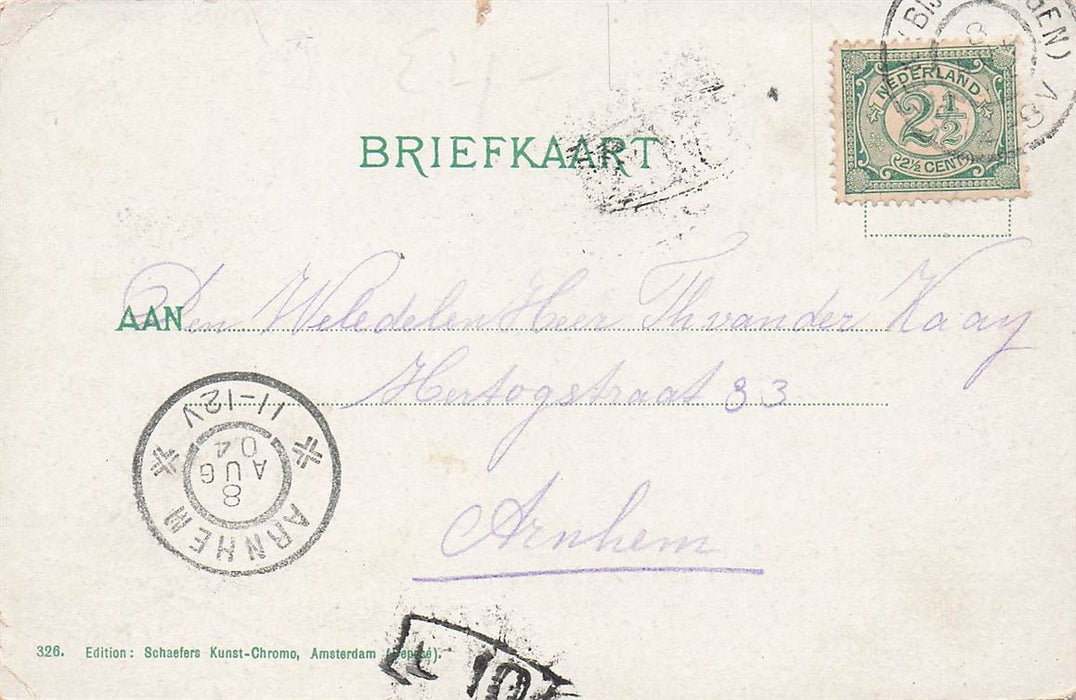 £4/-
BRIEFKAART
NEDERLAND
2½
(2½ CENT)
(BIJ GEN)
8
8V
AAN Den Weledelen Heer Th van der Kaay
Hertogstraat 33
Arnhem
ARNHEM
8
AUG
04
11-12V
326. Edition: Schaefers Kunst-Chromo, Amsterdam (Deposé).